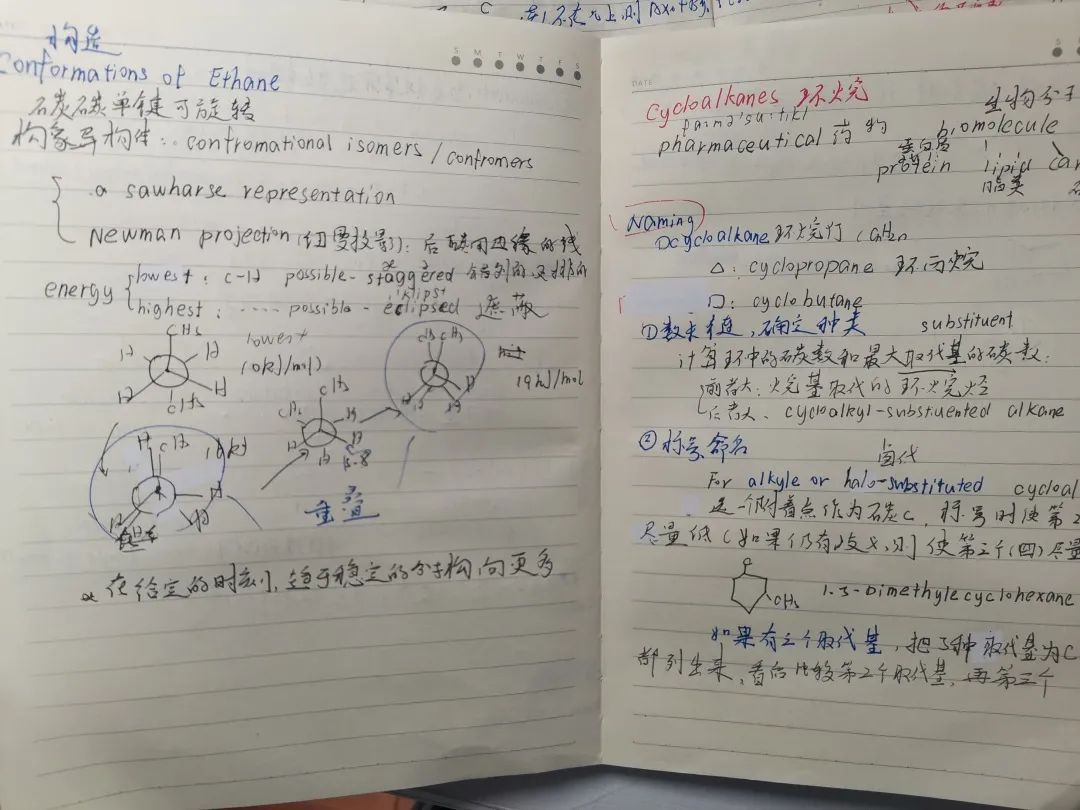 构造
Conformations of Ethane
石炭碳单键可旋转
构象异构体: confromational isomers / confromers
a sawharse representation
Newman projection (纽曼投影): 后碳用边缘的线
energy
lowest: C-H possible- staggered 错列的
highest: ---- possible- eclipsed 遮蔽
CH3
H
H
H
H
CH3
lowest
(0kJ/mol)
CH3
CH3
H
H
H
H
CH3
CH3
H
H
H
19kJ/mol
H
CH
H
H
重叠
在给定的时刻, 趋于稳定的分子构向更多
S M T W T F S
DATE
S
Cycloalkanes 环烷
pharmaceutical 药物
生物分子
biomolecule
蛋白质
protein lipid car
脂类
Naming
cycloalkane 环烷烃 CnH2n
△: cyclopropane 环丙烷
□: cyclobutane
①数主链,确定种类 substituent
计算环中的石炭数和最大取代基的碳数:
前者大: 烷基取代的环烷烃
后者大. cycloalkyl-substuented alkane
②标号命名 卤代
For alkyle or halo-substituted cycloal
选一个附着点作为石炭C, 标号时使第2
尽量低 (如果仍有歧义,则使第三个(四)尽量
CH3
1.3-Dimethylecyclohexane
如果有三个取代基, 把3种取代基为C
都列出来, 看后比较第2个取代基, 再第三个